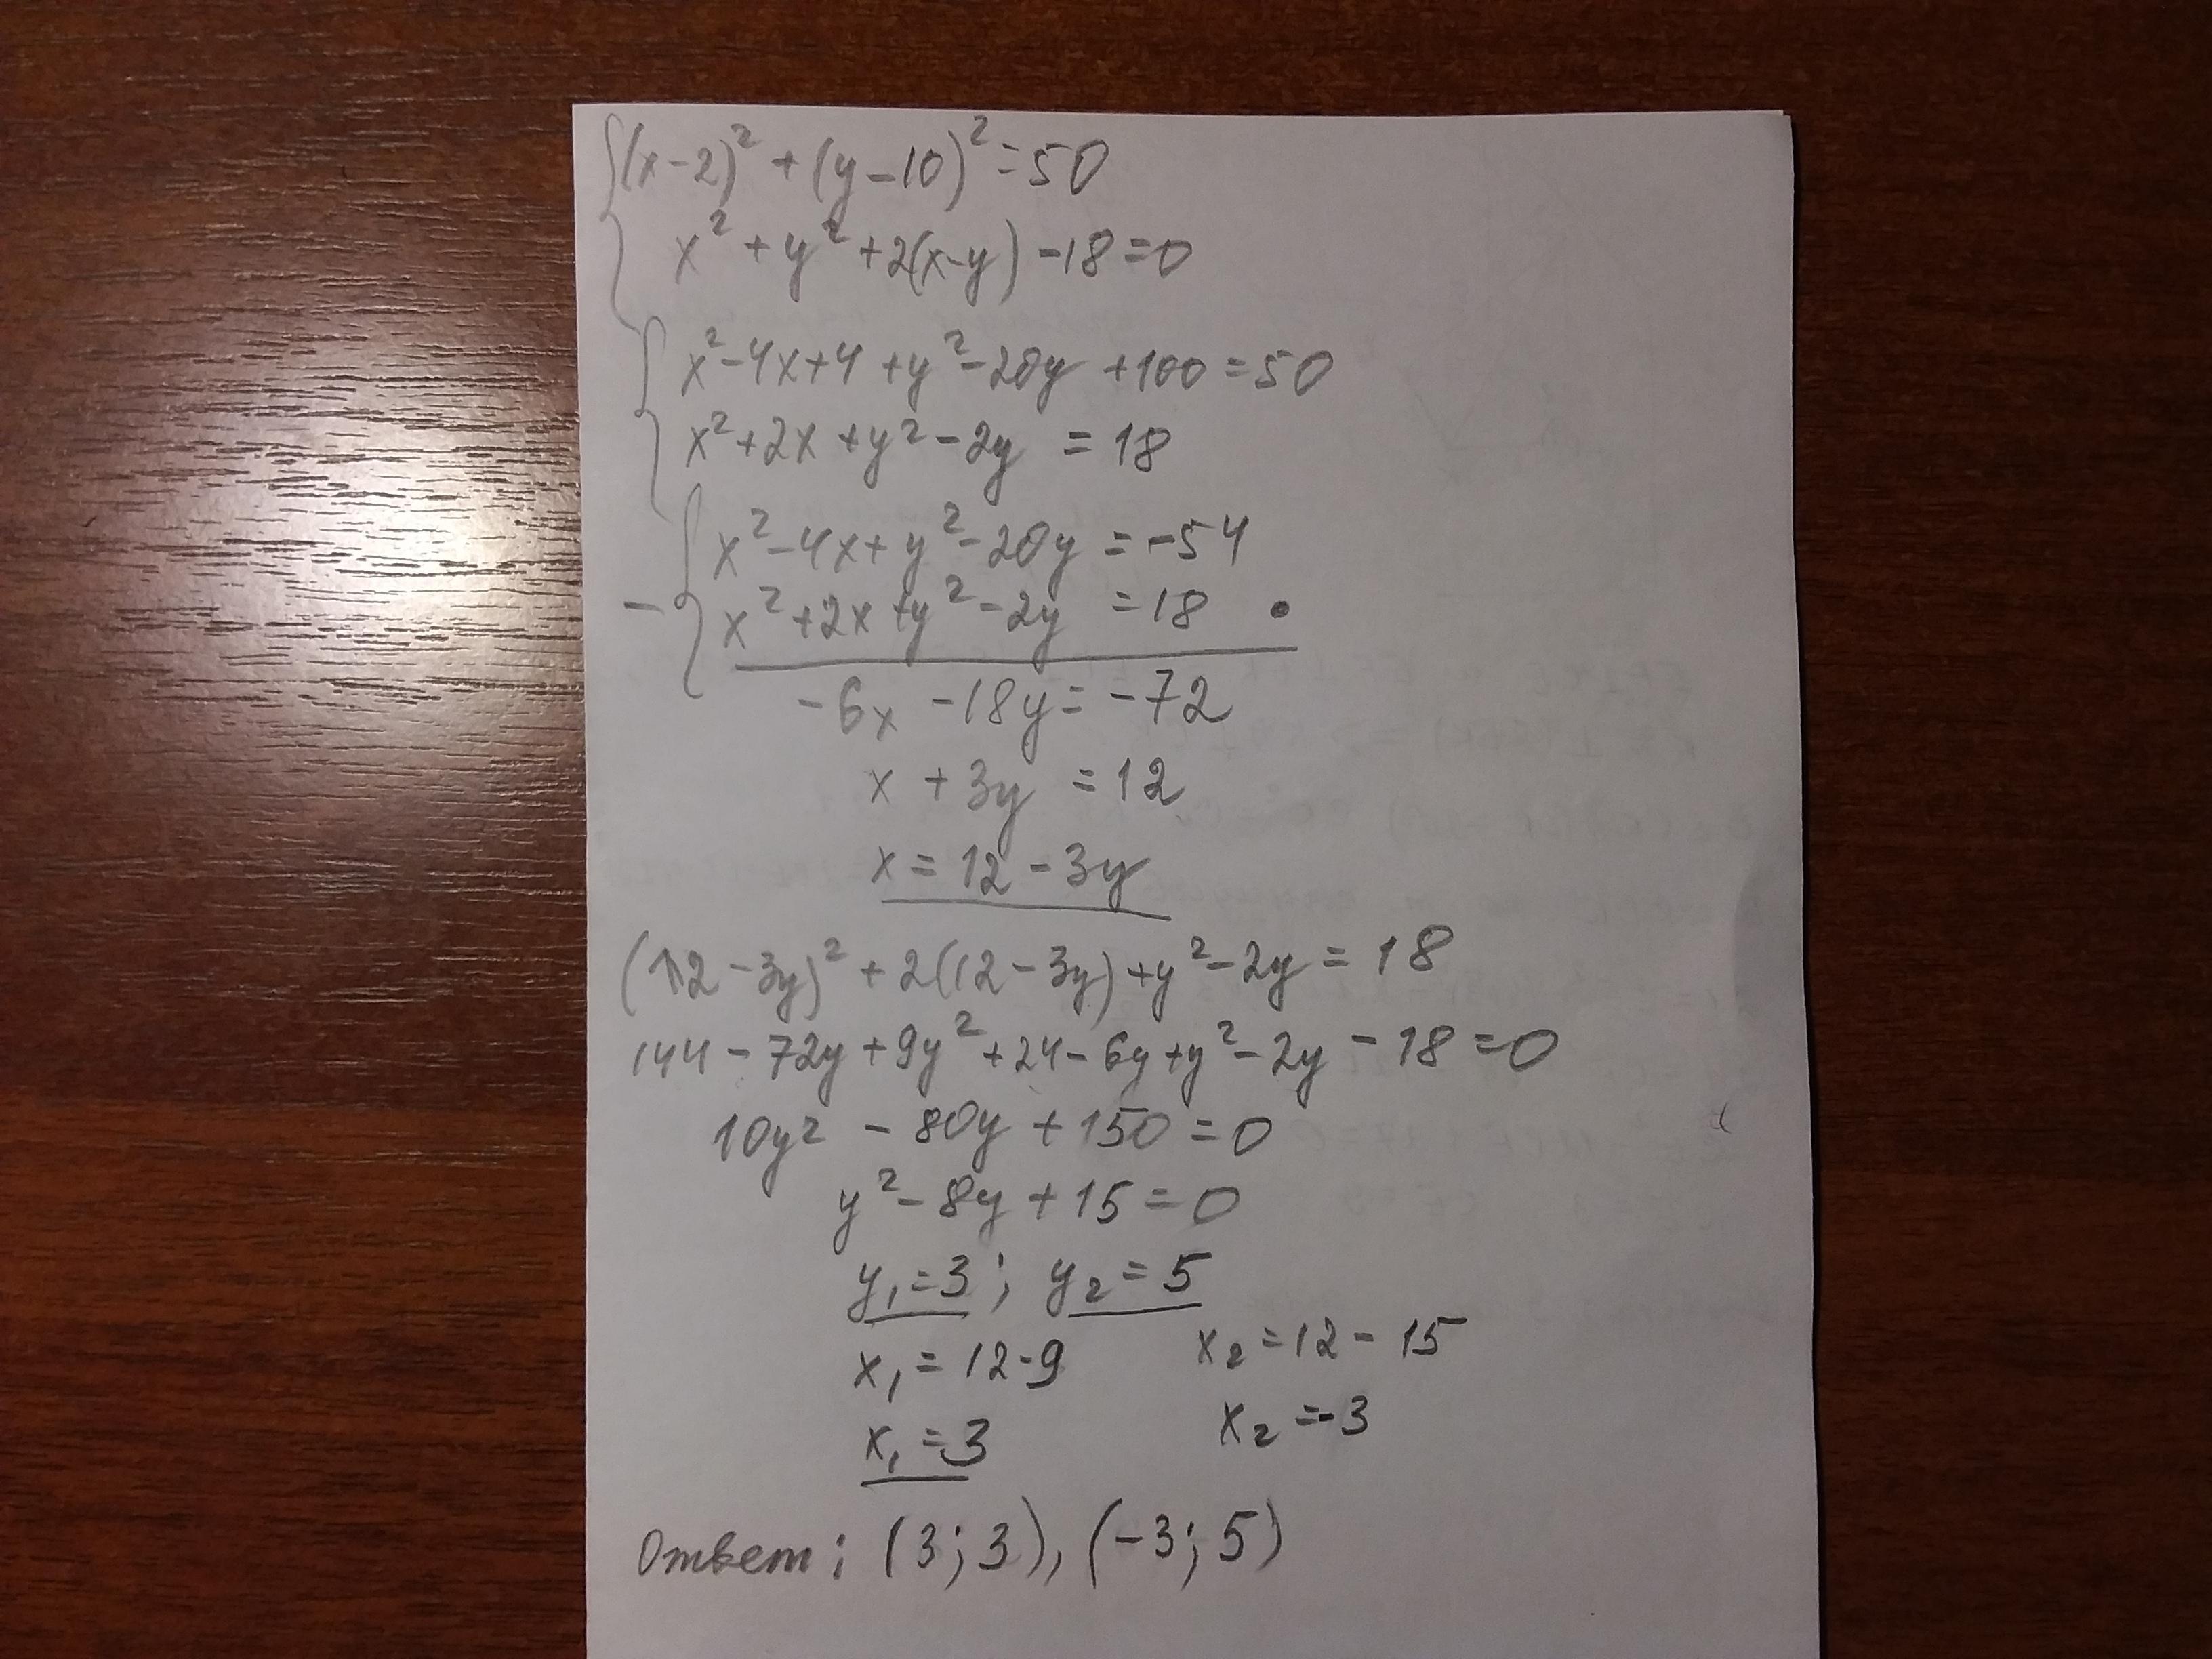 (x-2)² + (y-10)² = 50
x² + y² + 2(x-y) - 18 = 0
x² - 4x + 4 + y² - 20y + 100 = 50
x² + 2x + y² - 2y = 18
x² - 4x + y² - 20y = -54
- x² + 2x + y² - 2y = 18
-6x - 18y = -72
x + 3y = 12
x = 12 - 3y
(12 - 3y)² + 2(12 - 3y) + y² - 2y = 18
144 - 72y + 9y² + 24 - 6y + y² - 2y - 18 = 0
10y² - 80y + 150 = 0
y² - 8y + 15 = 0
y₁ = 3; y₂ = 5
x₁ = 12 - 9 x₂ = 12 - 15
x₁ = 3 x₂ = -3
Ответ: (3; 3), (-3; 5)